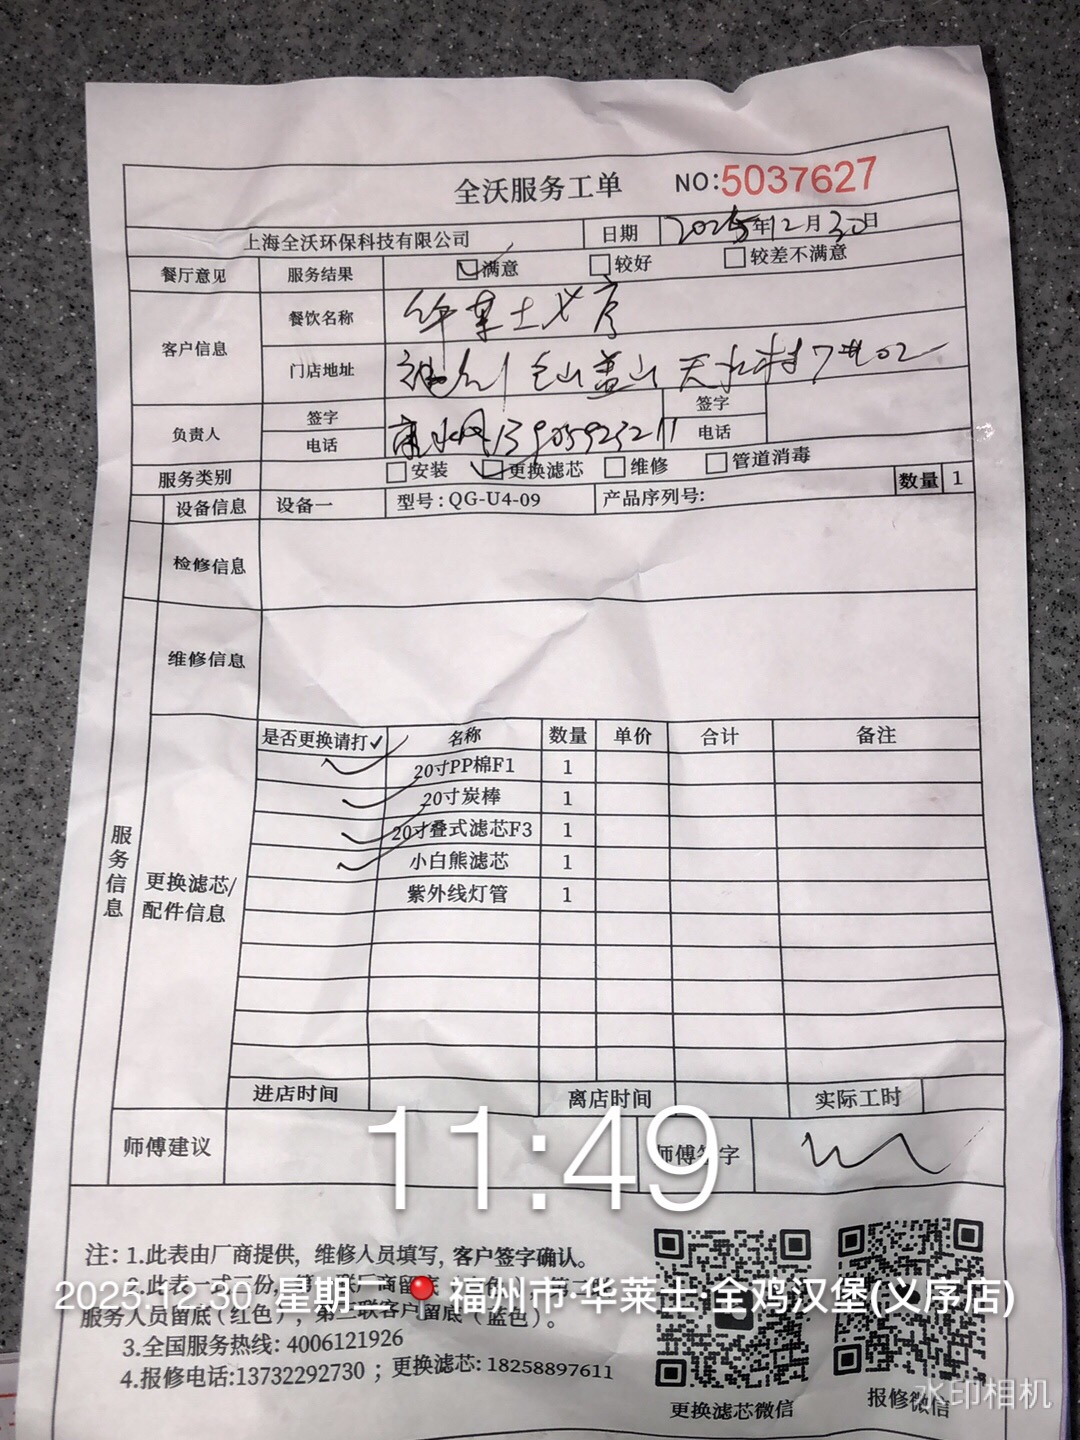 全沃服务工单 NO:5037627
上海全沃环保科技有限公司 日期 2025年12月30日
餐厅意见 服务结果 满意 较好 较差不满意
客户信息 餐饮名称 华莱士义序
门店地址 福州仓山盖山天水村7#02
负责人 签字 签字
电话 13905923211 电话
服务类别 安装 更换滤芯 维修 管道消毒
设备信息 设备一 型号:QG-U4-09 产品序列号: 数量 1
检修信息
维修信息
服务信息
更换滤芯/
配件信息
是否更换请打✓ 名称 数量 单价 合计 备注
✓ 20寸PP棉F1 1
✓ 20寸炭棒 1
✓ 20寸叠式滤芯F3 1
✓ 小白熊滤芯 1
紫外线灯管 1
进店时间 离店时间 实际工时
师傅建议 师傅签字
11:49
注: 1.此表由厂商提供, 维修人员填写, 客户签字确认。
2.此表一式三份,
2025.12.30 星期二 福州市·华莱士·全鸡汉堡(义序店)
服务人员留底(红色), 第三联客户留底(蓝色)。
3.全国服务热线: 4006121926
4.报修电话:13732292730 ; 更换滤芯: 18258897611
更换滤芯微信 报修微信
水印相机